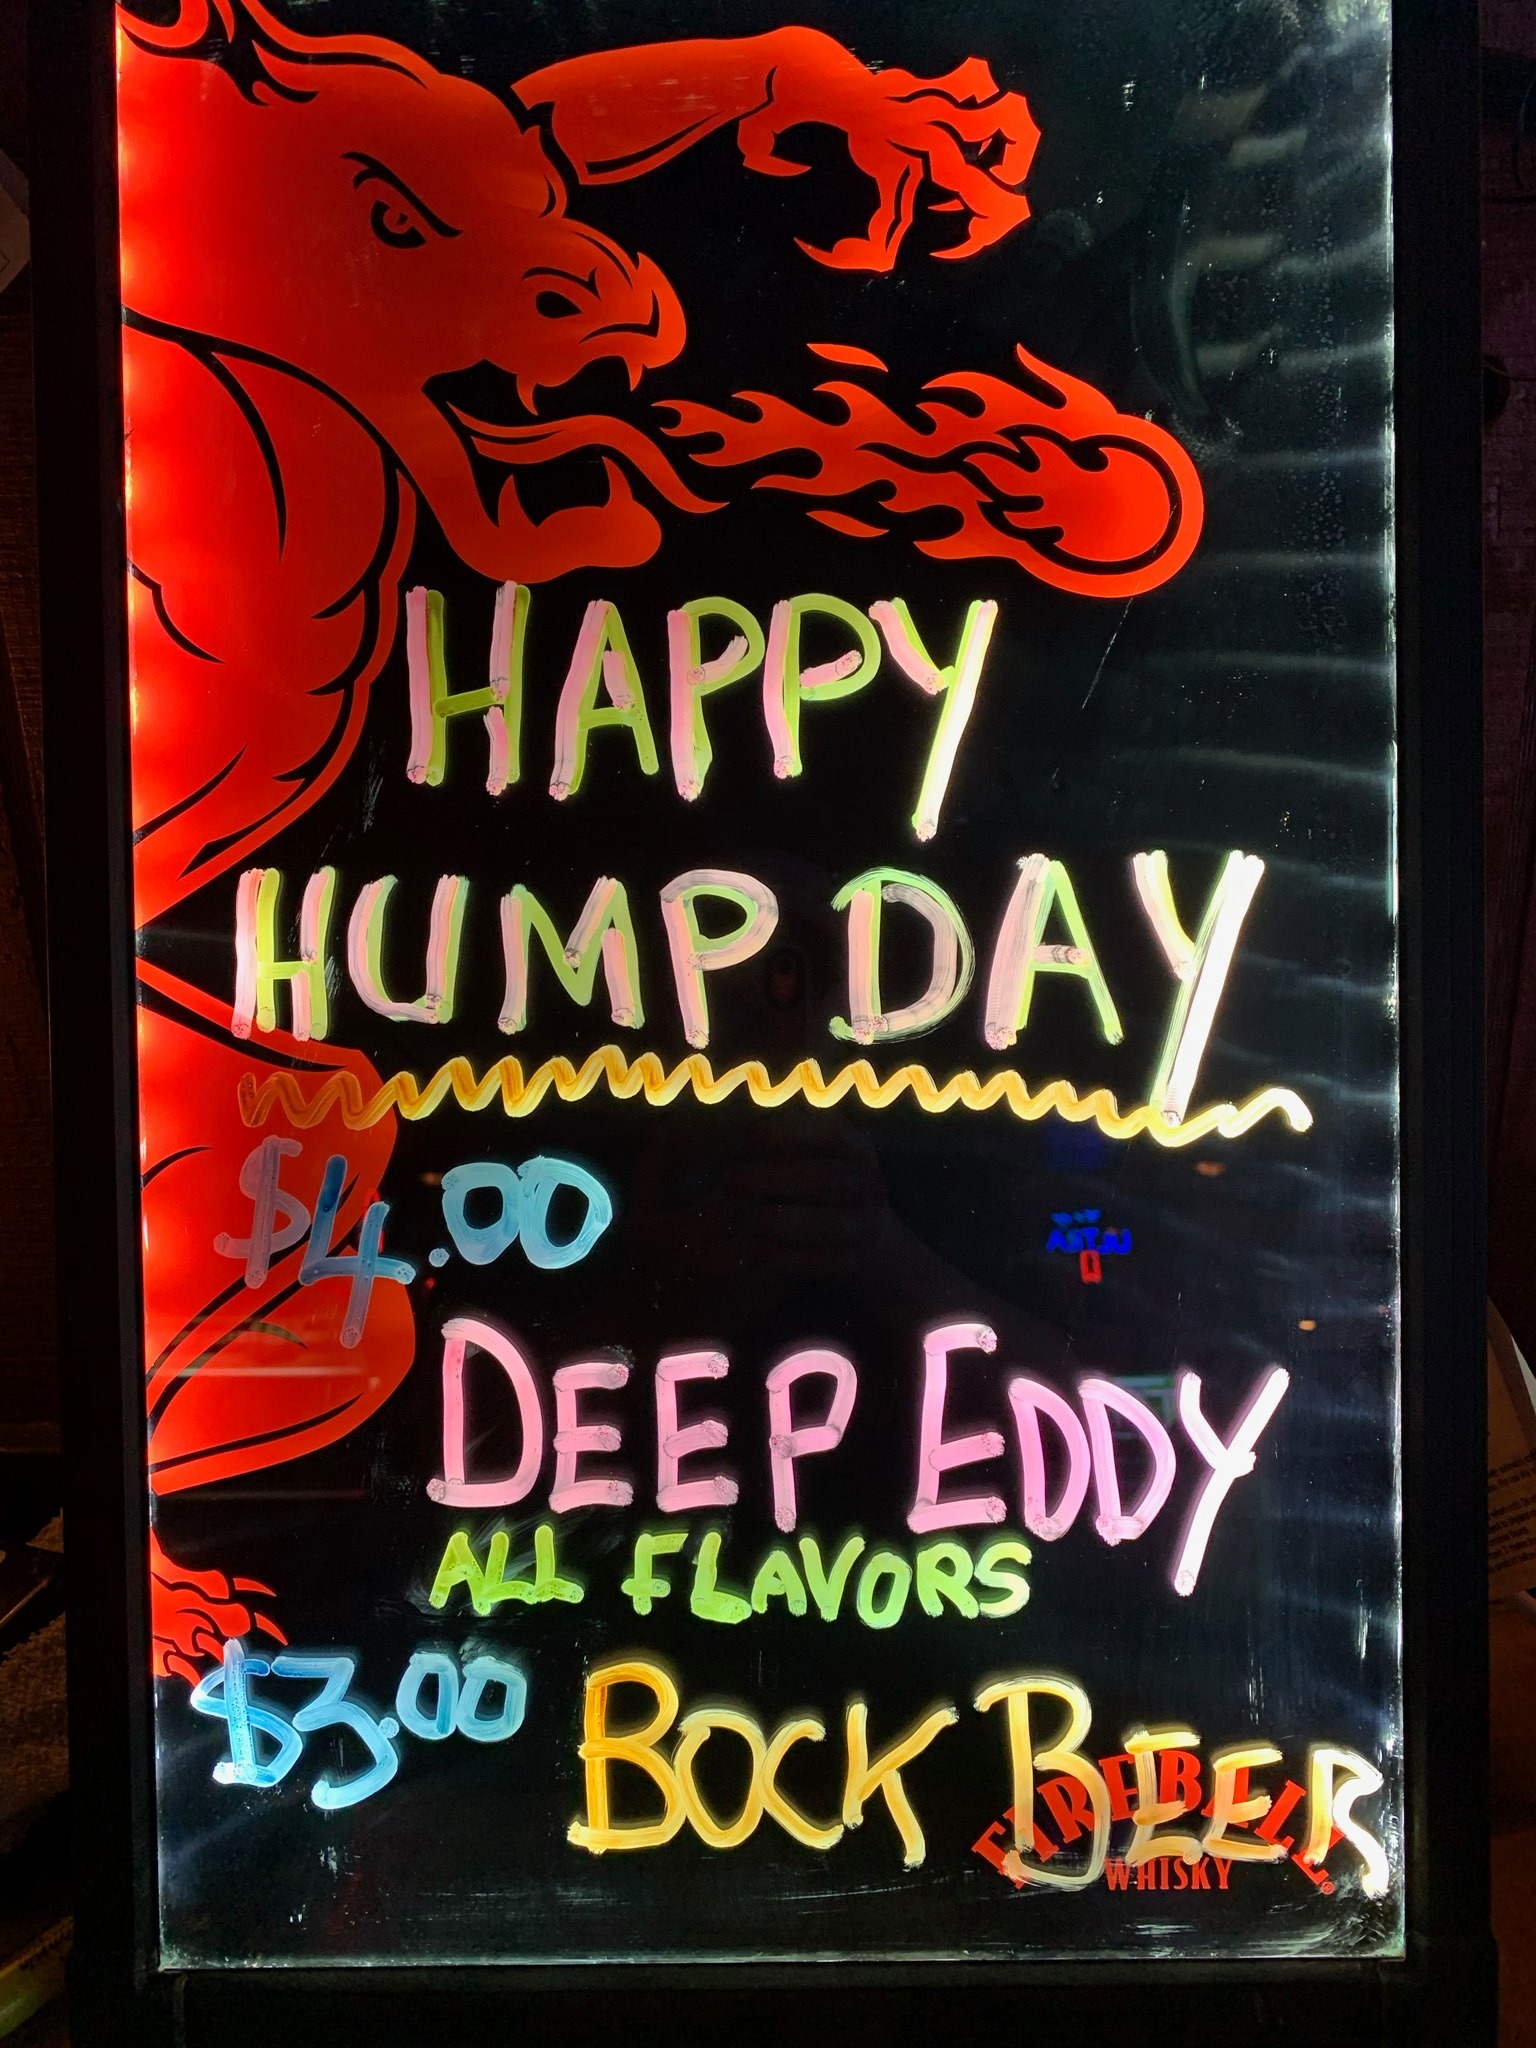 HAPPY
HUMP DAY
$4.00
DEEP EDDY
ALL FLAVORS
$3.00 BOCK BEER
FIREBALL
WHISKY